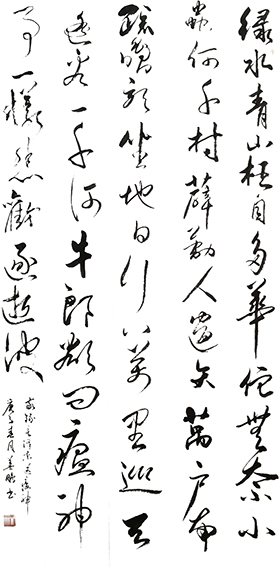 緑水青山枉自多華佗無奈小
蟲何千村薜荔人遗矢萬户萧
疏鬼唱歌坐地日行八萬里巡天
遥看一千河牛郎欲问瘟神
事一樣悲歡逐逝波
敬録毛泽东送瘟神
庚子春月书